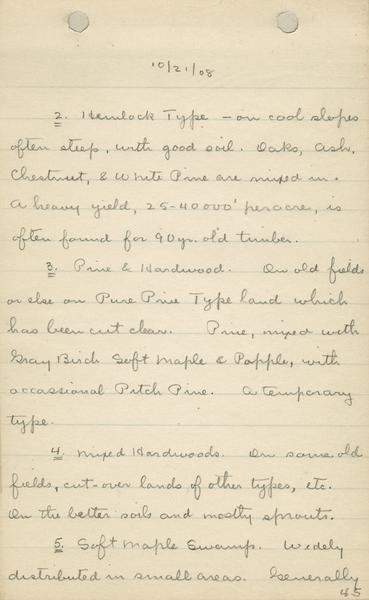 10/21/08
2. Hemlock Type - on cool slopes
often steep, with good soil. Oaks, Ash,
Chestnut, & White Pine are mixed in.
A heavy yield, 25-40000' per acre, is
often found for 90 yr. old timber.
3. Pine & Hardwood. On old fields
or else on Pure Pine Type land which
has been cut clear. Pine, mixed with
Gray Birch Soft Maple & Popple, with
occassional Pitch Pine. A temporary
type.
4. Mixed Hardwoods. On some old
fields, cut-over lands of other types, etc.
On the better soils and mostly sprouts.
5. Soft Maple Swamp. Widely
distributed in small areas. Generally
45